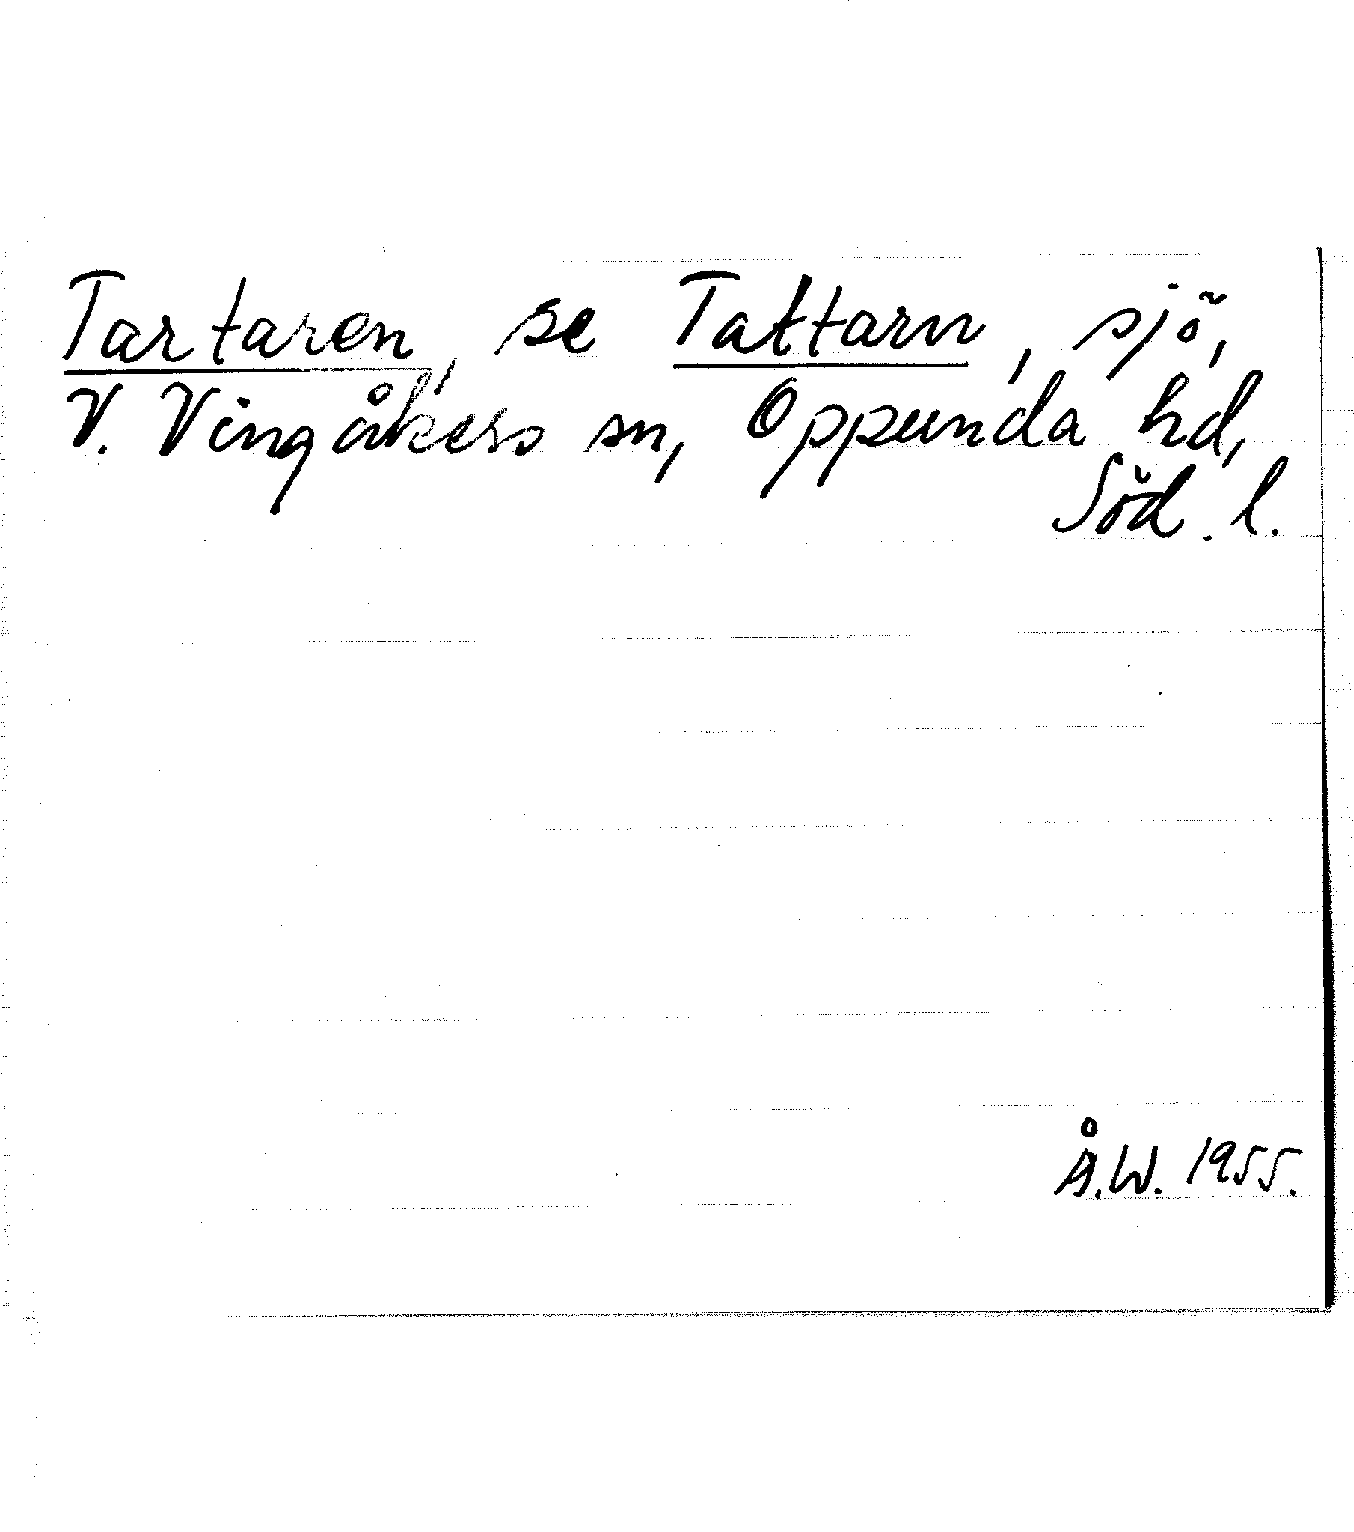 Tartaren, se Tattarn, sjö,
V. Vingåkers sn, Oppunda hd,
Söd. l.
Å.W. 1955.